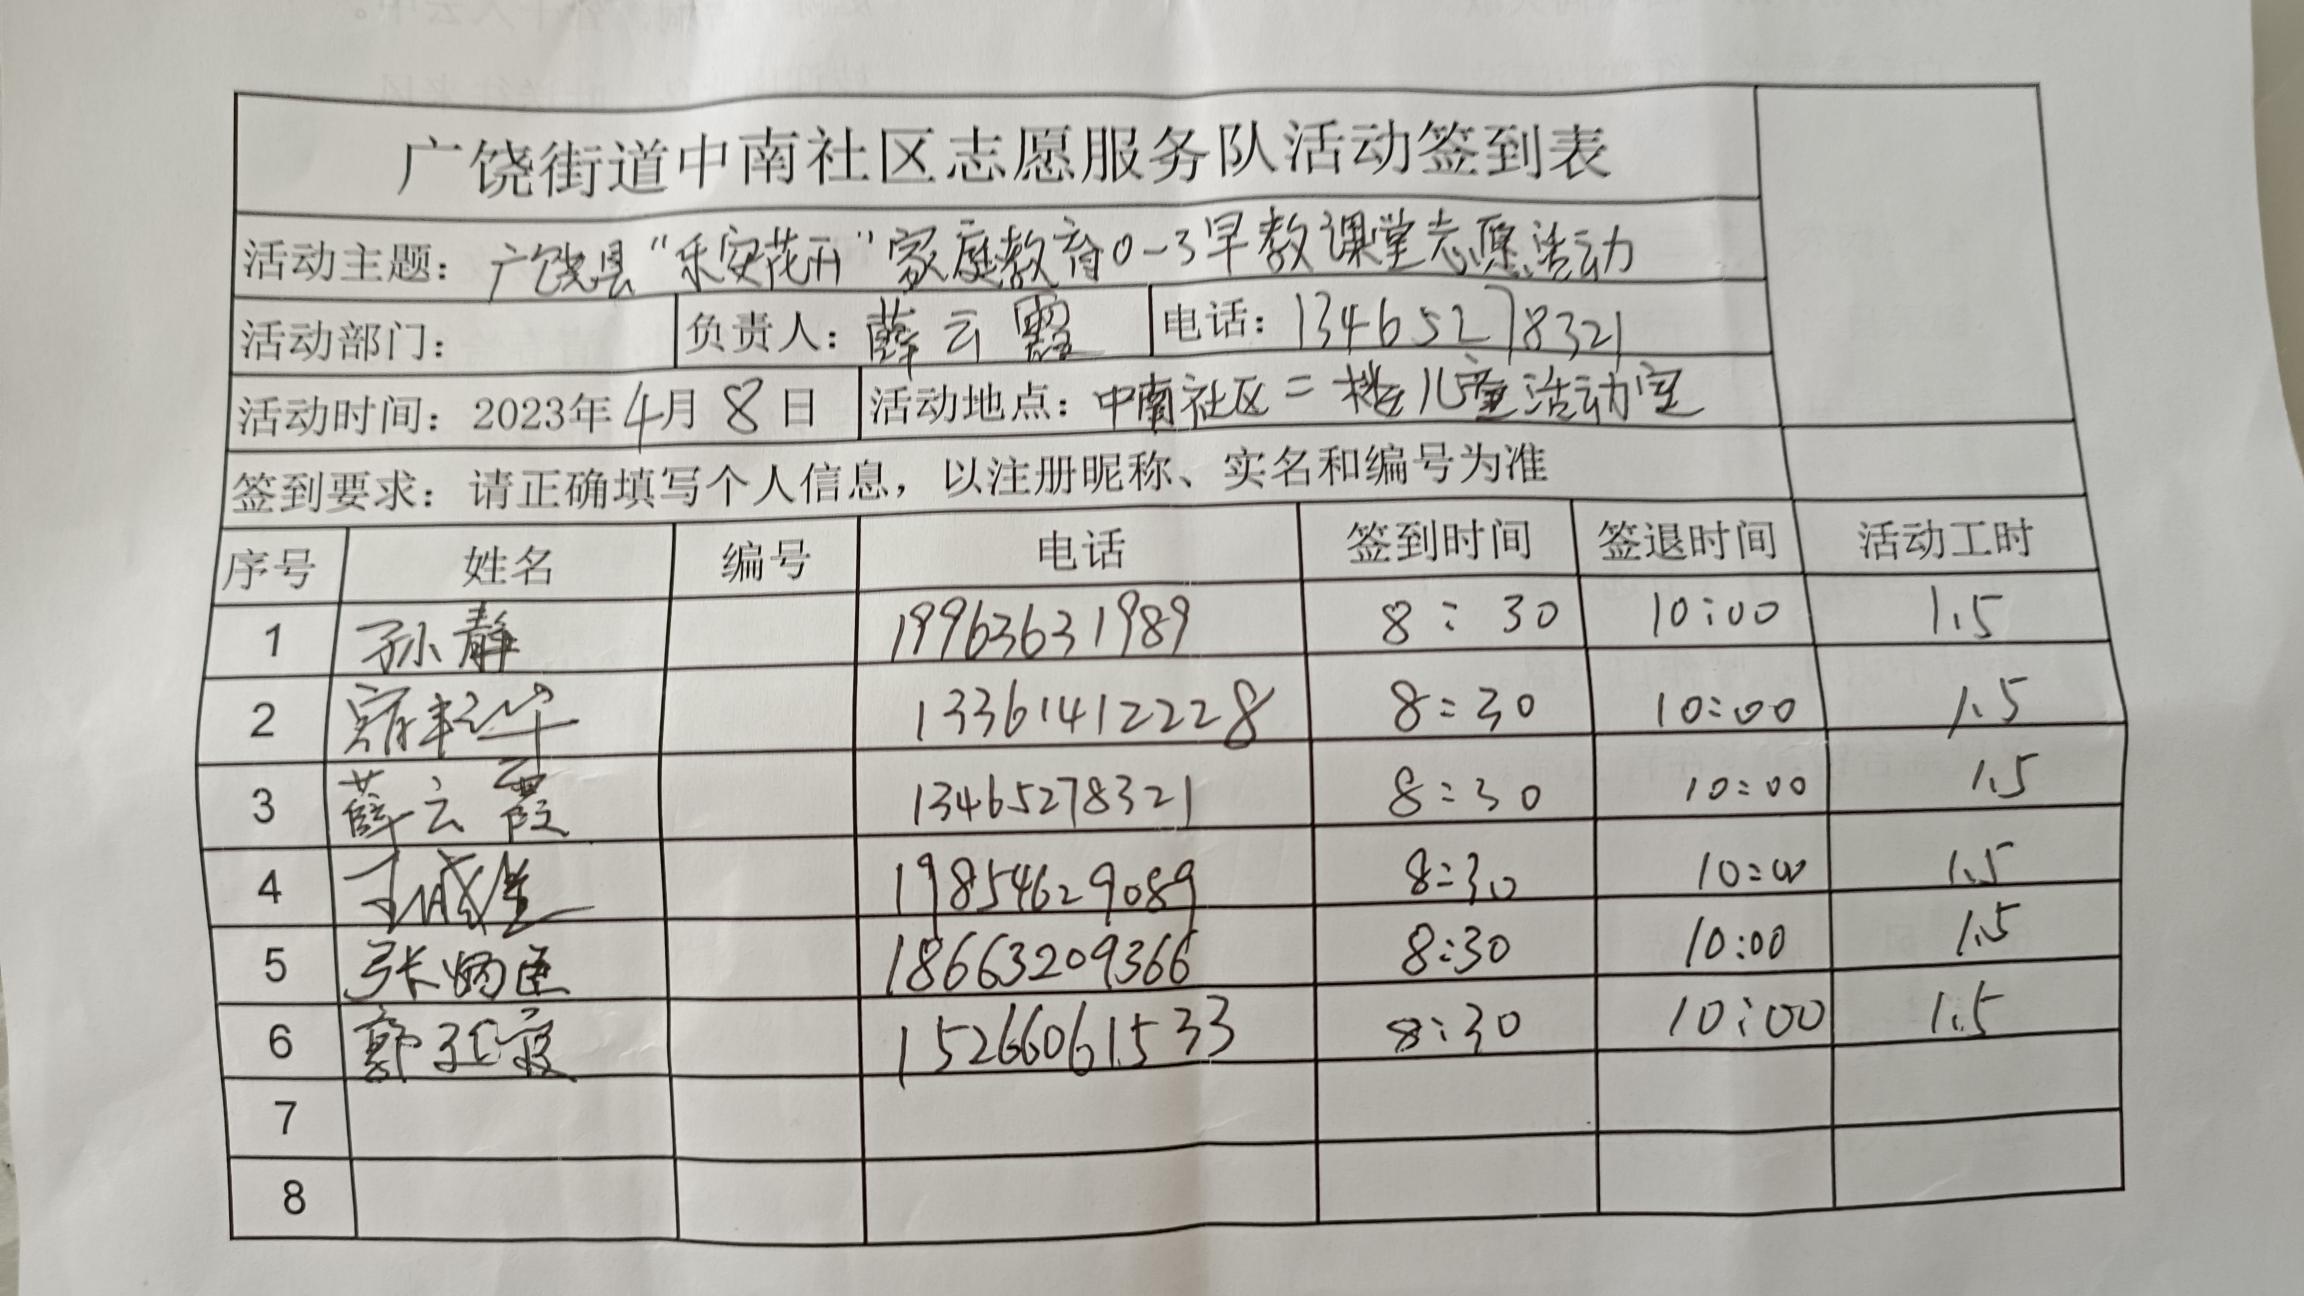 广饶街道中南社区志愿服务队活动签到表
活动主题：广饶县“乐安花开”家庭教育0-3早教课堂志愿活动
活动部门： 负责人：薛云霞 电话：13465278321
活动时间：2023年4月8日 活动地点：中南社区二楼儿童活动室
签到要求：请正确填写个人信息，以注册昵称、实名和编号为准
序号 姓名 编号 电话 签到时间 签退时间 活动工时
1 孙静 19963631989 8:30 10:00 1.5
2 13361412228 8:30 10:00 1.5
3 薛云霞 13465278321 8:30 10:00 1.5
4 19854629089 8:30 10:00 1.5
5 张炳臣 18663209366 8:30 10:00 1.5
6 郭红霞 15266061533 8:30 10:00 1.5
7
8